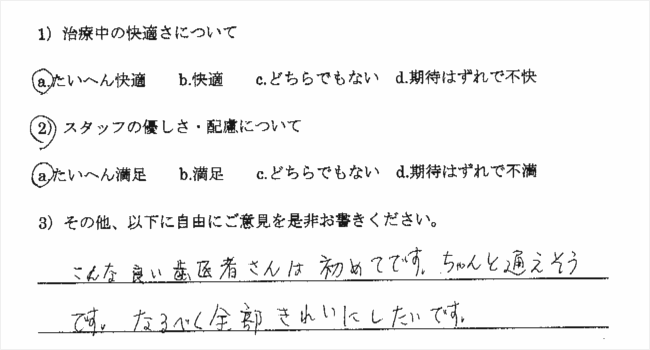 1) 治療中の快適さについて
a.たいへん快適 b.快適 c.どちらでもない d.期待はずれで不快
2) スタッフの優しさ・配慮について
a.たいへん満足 b.満足 c.どちらでもない d.期待はずれで不満
3) その他、以下に自由にご意見を是非お書きください。
こんな良い歯医者さんは初めてです。ちゃんと通えそう
です。なるべく全部きれいにしたいです。